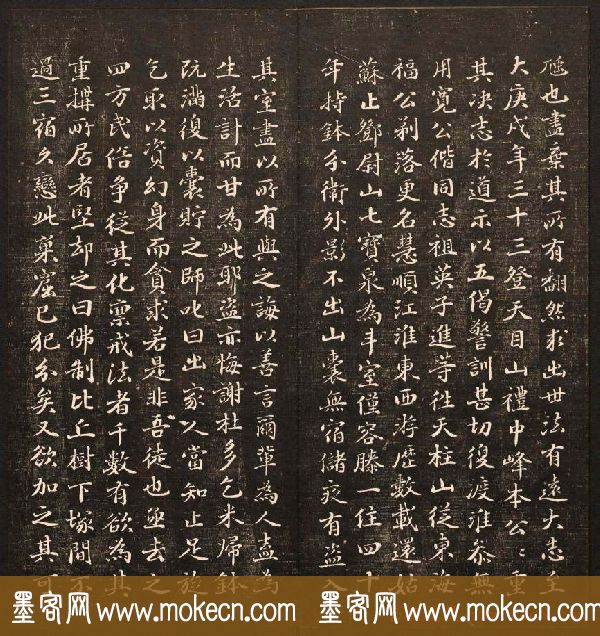 愿也盡棄其所有翻然求出世法有遠大志至
大庚戌年三十三登天目山禮中峰本公〻重
其决志於道示以五偈警訓甚切復渡淮叅無
用寬公偕同志祖英子進等往天柱山從東海
福公剃落更名慧順江淮東西游歴數載還姑
蘇止鄧尉山七寶泉為斗室僅容膝一住四十
年持鉢分衛外影不出山囊無宿儲夜有盗入
其室盡以所有與之誨以善言爾輩為人盍為
生活計而甘為此耶盗亦悔謝杜多乞米歸鉢
既滿復以囊貯之師叱曰出家人當知止足旋
乞取以資幻身而貪求若是非吾徒也亟去之
四方民俗争從其化禀戒法者千數有欲為其
重搆所居者堅却之曰佛制比丘樹下塚間不
過三宿久戀此巢窟已犯分矣又欲加之其可
墨客网 www.mokecn.com 墨客网 www.mokecn.com